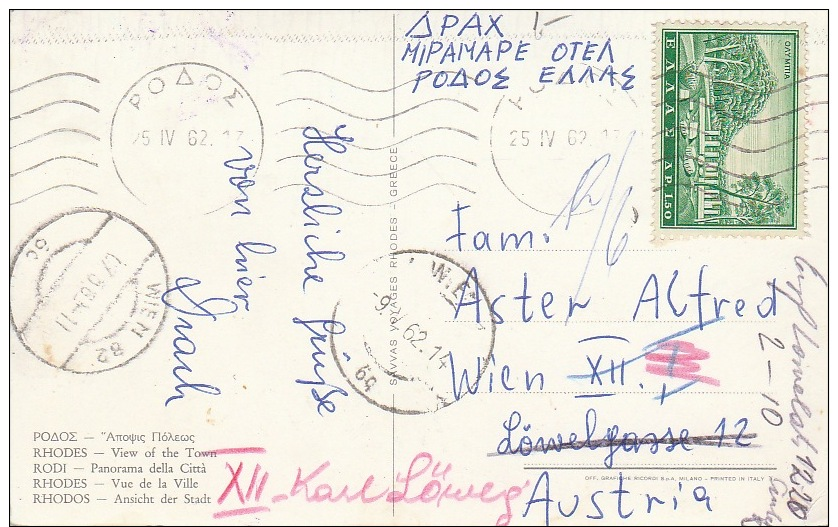 ΔΡΑΧ
ΜΙΡΑΜΑΡΕ ΟΤΕΛ
ΡΟΔΟΣ ΕΛΛΑΣ
ΟΛΥΜΠΙΑ
ΕΛΛΑΣ ΔΡ. 1.50
ΡΟΔΟΣ
25 IV 62. 13
25 IV 62. 13
Herzliche Grüße
von hier
Drach
WIEN 82
62.14
59
SAVVAS VOYAGES RHODES - GREECE
Fam.
Aster Alfred
Wien XII.
Löwelgasse 12
Austria
XII - Karl Löweg
2-10
ΡΟΔΟΣ — Ἄποψις Πόλεως
RHODES — View of the Town
RODI — Panorama della Città
RHODES — Vue de la Ville
RHODOS — Ansicht der Stadt
OFF. GRAFICHE RICORDI S.p.A. MILANO - PRINTED IN ITALY